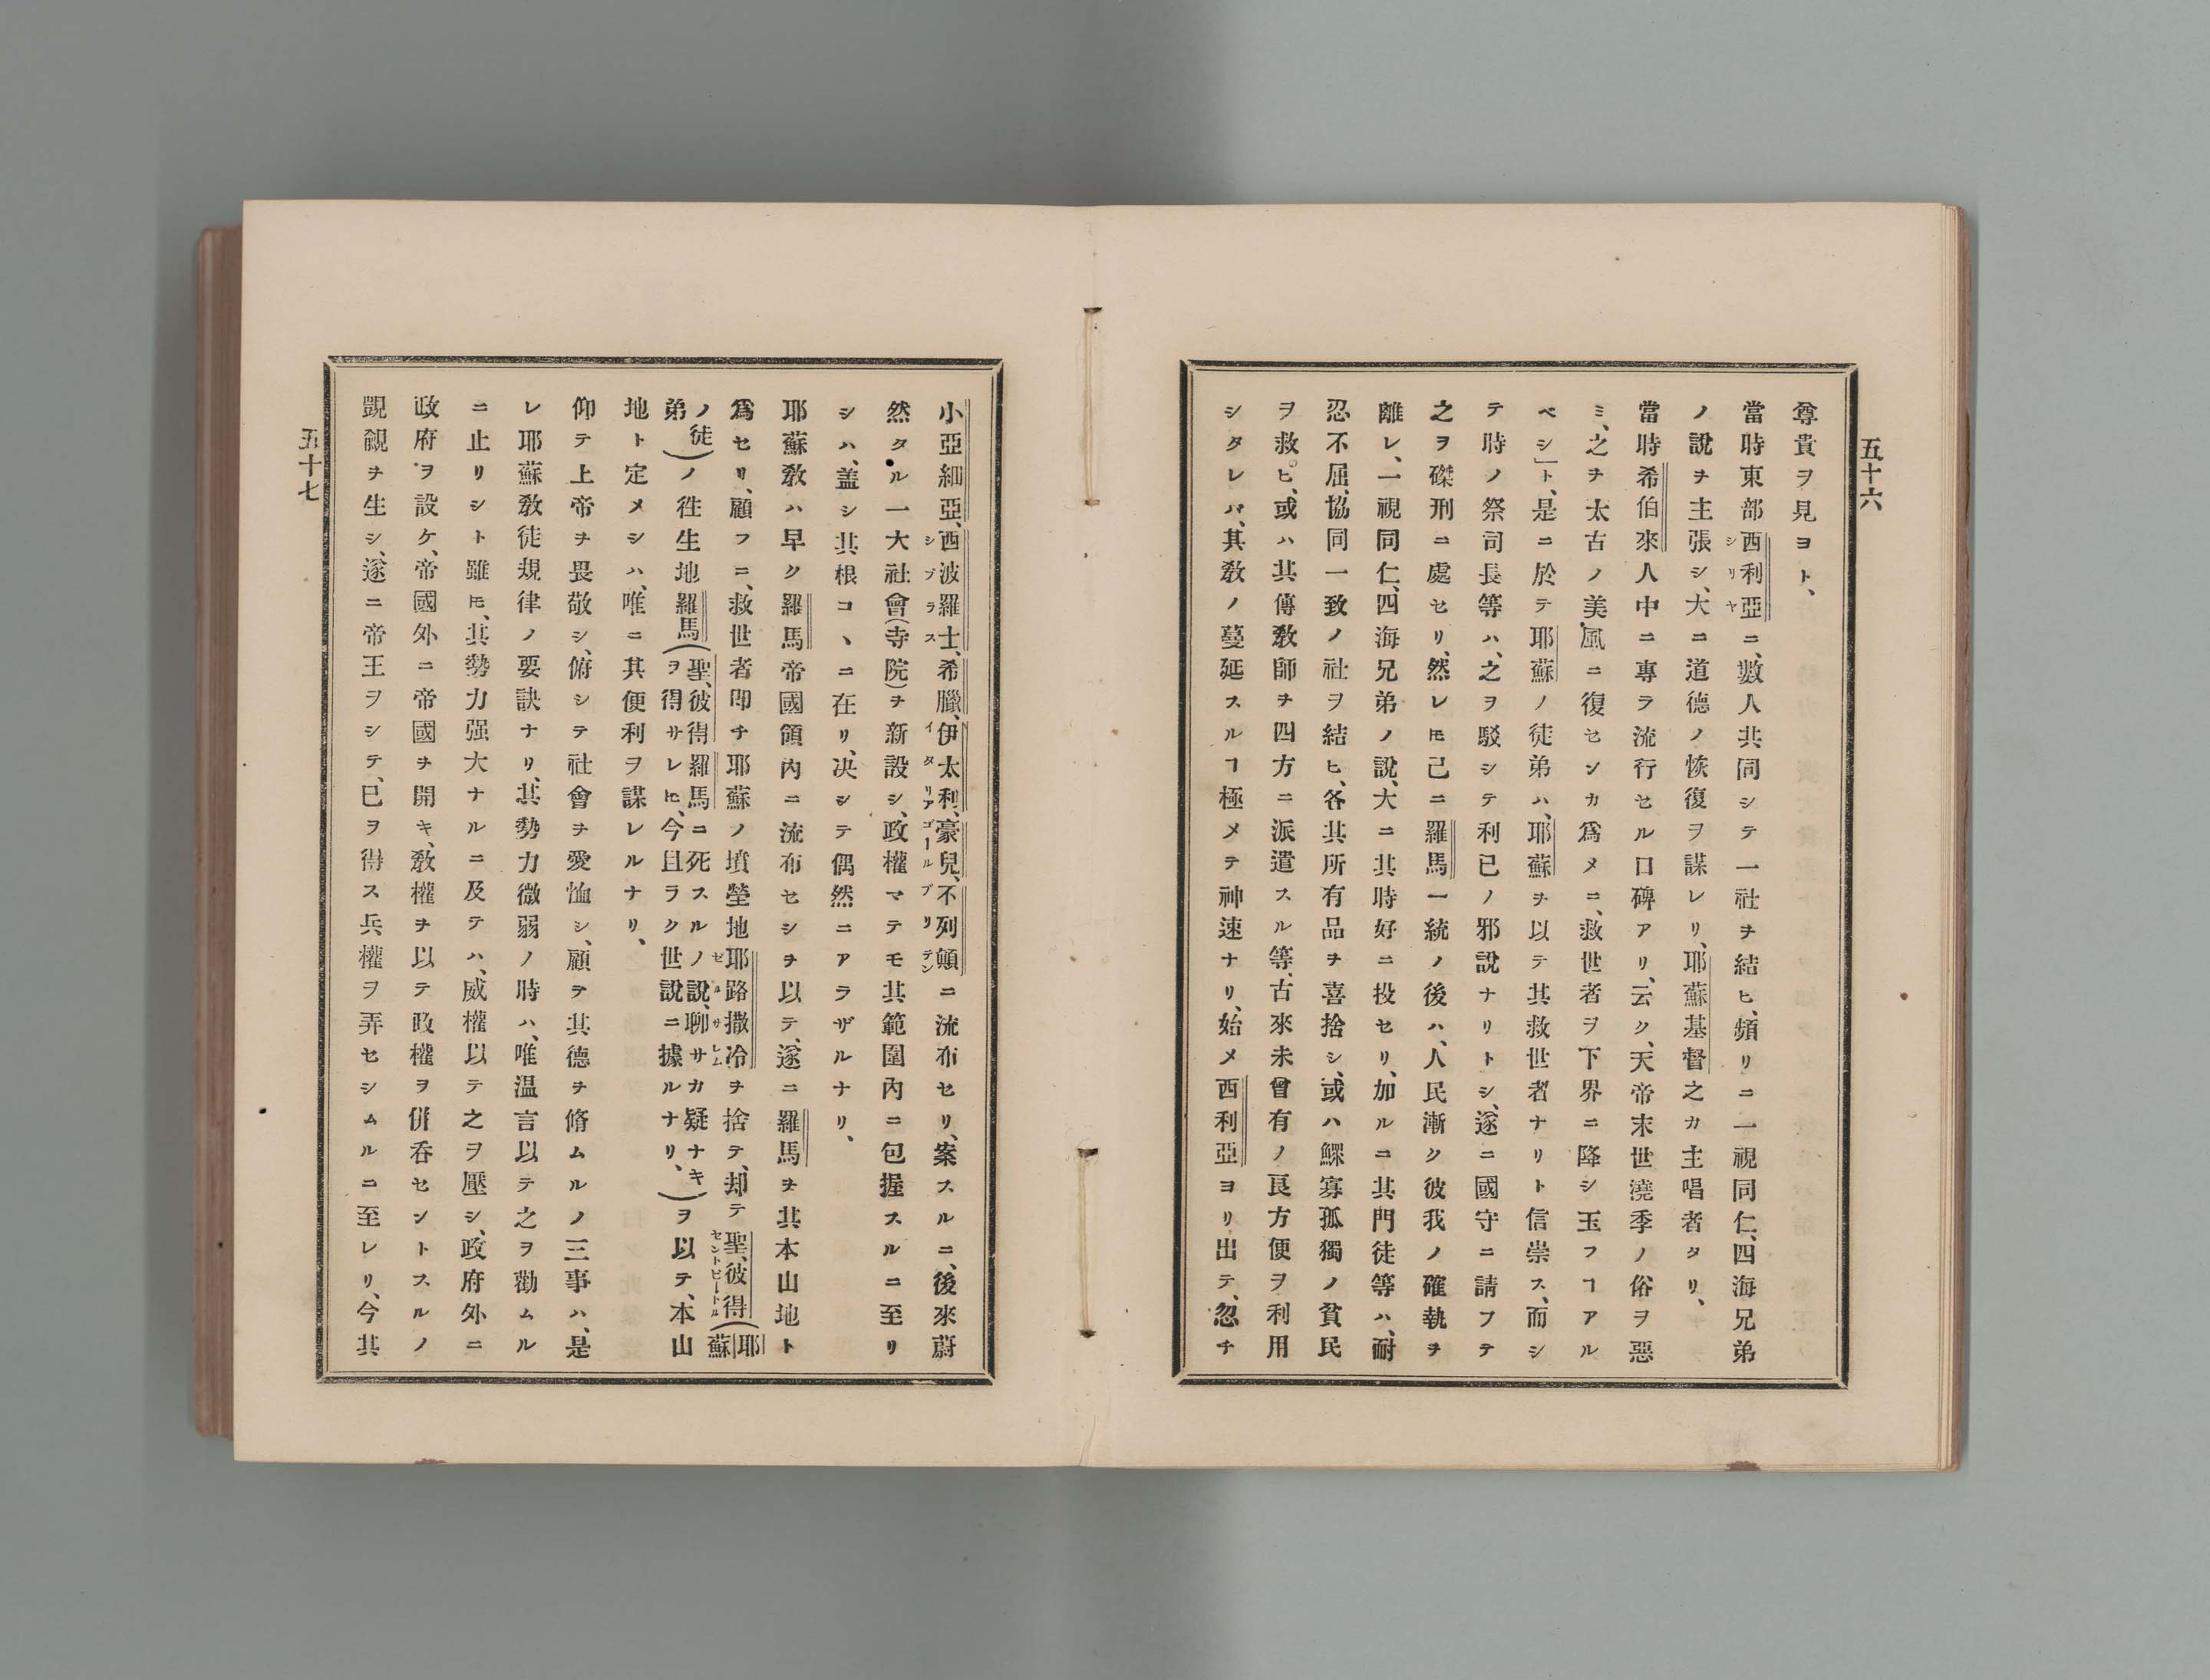 五十六
尊貴ヲ見ヨト、
當時東部西利亞ニ、數人共同シテ一社ヲ結ヒ、頻リニ一視同仁、四海兄弟
シリヤ
ノ說ヲ主張シ、大ニ道德ノ恢復ヲ謀レリ、耶蘇基督之カ主唱者タリ、
當時希伯來人中ニ專ラ流行セル口碑アリ、云ク、天帝末世澆季ノ俗ヲ惡
ミ、之ヲ太古ノ美風ニ復センカ爲メニ、救世者ヲ下界ニ降シ玉フヿアル
ベシ」ト、是ニ於テ耶蘇ノ徒弟ハ、耶蘇ヲ以テ其救世者ナリト信崇ス、而シ
テ時ノ祭司長等ハ、之ヲ駁シテ利已ノ邪說ナリトシ、遂ニ國守ニ請フテ
之ヲ磔刑ニ處セリ、然レ𪜈己ニ羅馬一統ノ後ハ、人民漸ク彼我ノ確執ヲ
離レ、一視同仁、四海兄弟ノ說、大ニ其時好ニ投セリ、加ルニ其門徒等ハ、耐
忍不屈、協同一致ノ社ヲ結ヒ、各其所有品ヲ喜捨シ、或ハ鰥寡孤獨ノ貧民
ヲ救ヒ、或ハ其傳敎師ヲ四方ニ派遣スル等、古來未曾有ノ良方便ヲ利用
シタレハ、其敎ノ蔓延スルヿ極メテ神速ナリ、始メ西利亞ヨリ出テ、忽チ
小亞細亞、西波羅士、希臘、伊太利、豪兒、不列顛ニ流布セリ、案スルニ、後來蔚
シプラス イタリア ゴール ブリテン
然タル一大社會(寺院)ヲ新設シ、政權マテモ其範圍內ニ包握スルニ至リ
シハ、盖シ其根コヽニ在リ、决シテ偶然ニアラザルナリ、
耶蘇敎ハ早ク羅馬帝國領內ニ流布セシヲ以テ、遂ニ羅馬ヲ其本山地ト
爲セリ、顧フニ、救世者卽チ耶蘇ノ墳塋地耶路撒冷ヲ捨テ、却テ聖、彼得(耶蘇
ゼルサレム セントピートル
ノ徒弟)ノ徃生地羅馬(聖、彼得羅馬ニ死スルノ說、聊サカ疑ナキヲ得サレ𪜈、今且ラク世說ニ據ルナリ、)ヲ以テ、本山
地ト定メシハ、唯ニ其便利ヲ謀レルナリ、
仰テ上帝ヲ畏敬シ、俯シテ社會ヲ愛恤シ、顧テ其德ヲ脩ムルノ三事ハ、是
レ耶蘇敎徒規律ノ要訣ナリ、其勢力微弱ノ時ハ、唯温言以テ之ヲ勸ムル
ニ止リシト雖𪜈、其勢力强大ナルニ及テハ、威權以テ之ヲ壓シ、政府外ニ
政府ヲ設ケ、帝國外ニ帝國ヲ開キ、敎權ヲ以テ政權ヲ併呑セントスルノ
覬覦ヲ生シ、遂ニ帝王ヲシテ、已ヲ得ス兵權ヲ弄セシムルニ至レリ、今其
五十七